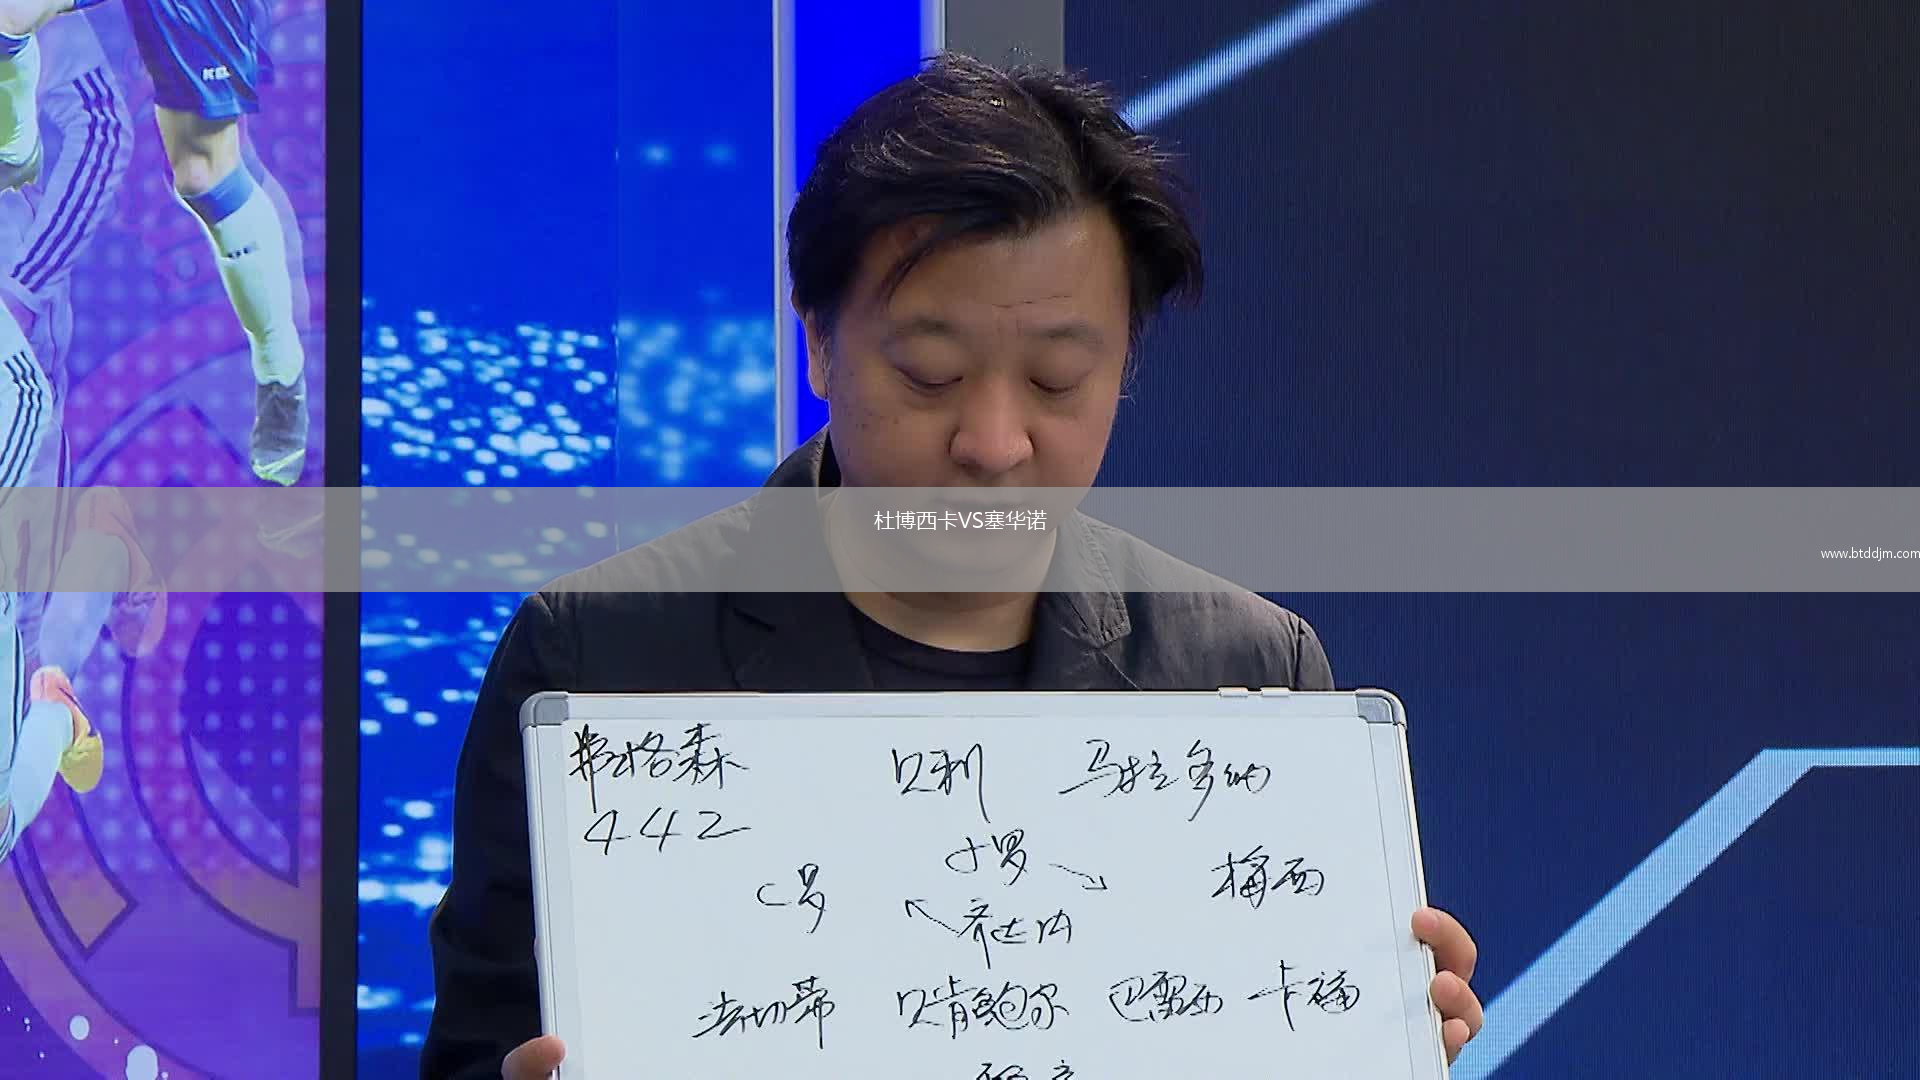 杜博西卡VS塞华诺
www.btddjm.com
弗格森 贝利 马拉多纳
442
小罗
C罗 梅西
齐达内
法切蒂 贝肯鲍尔 巴雷西 卡福